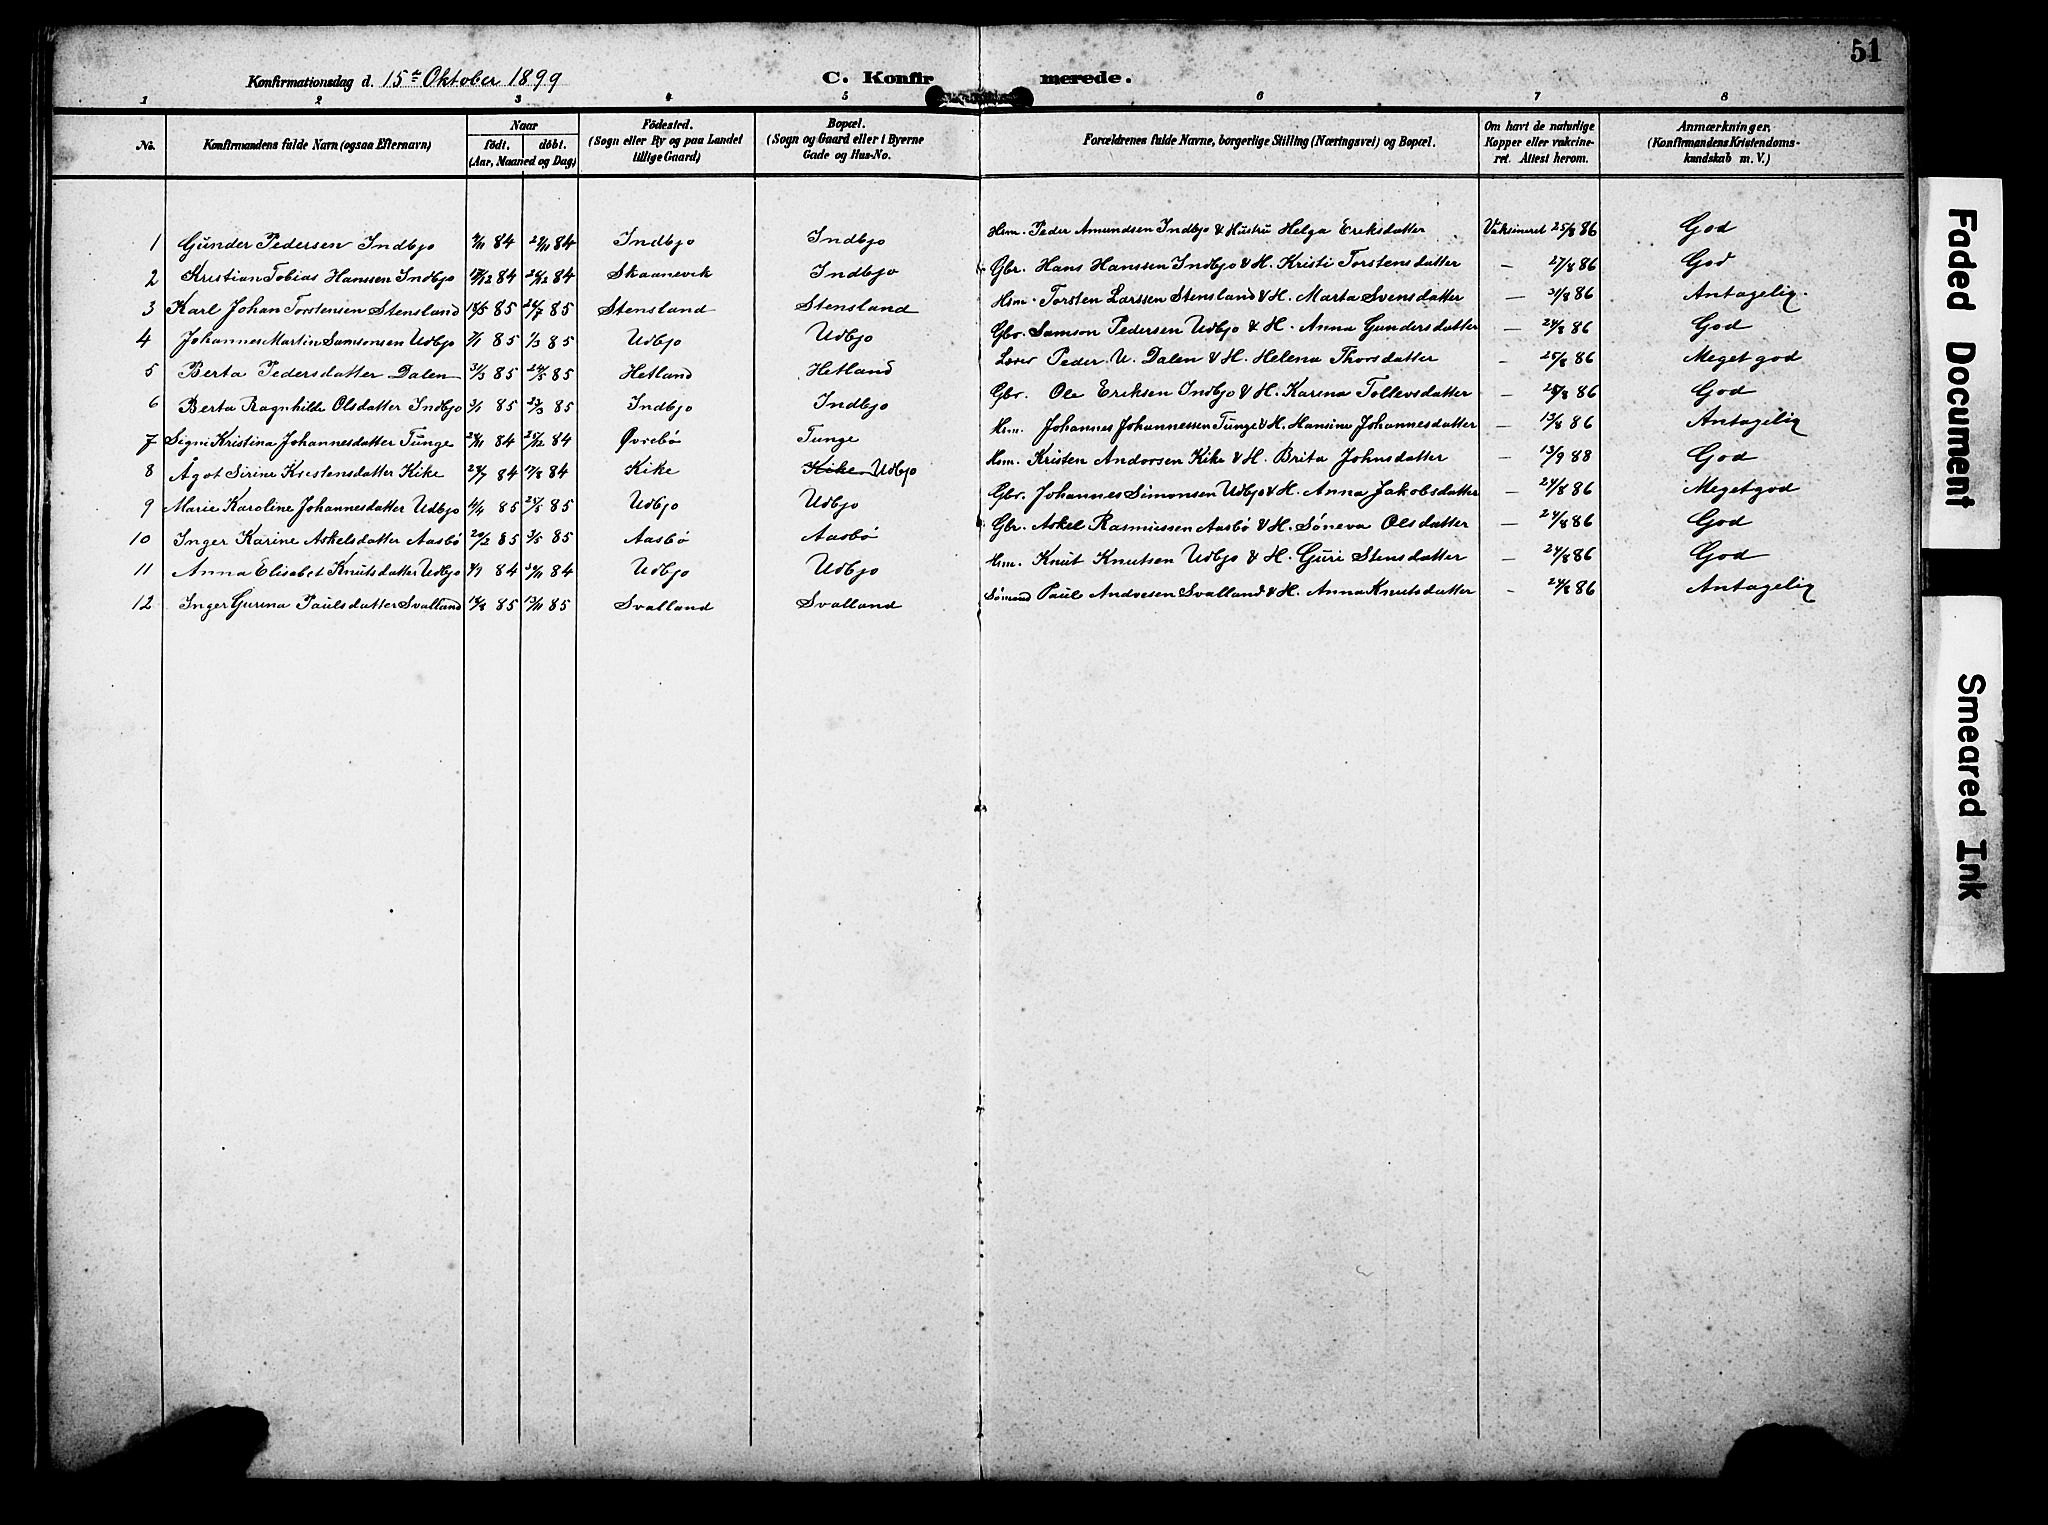 51
Konfirmationsdag d. 15de Oktober 1899 C. Konfirmerede.
1 2 3 4 5 6 7 8
No. Konfirmandens fulde Navn (ogsaa Efternavn) Naar født. døbt. (Aar, Maaned og Dag) Fødested. (Sogn eller By og paa Landet tillige Gaard) Bopæl. (Sogn og Gaard eller i Byerne Gade og Hus-No. Forældrenes fulde Navne, borgerlige Stilling (Næringsvei) og Bopæl. Om havt de naturlige Kopper eller vakcineret. Attest herom. Anmærkninger. (Konfirmandens Kristendomskundskab m. V.)
1 Gunder Pedersen Indbjo 84 84 Indbjo Indbjo Hsm. Peder Amundsen Indbjo & Hustru Helga Eriksdatter Vaksineret 25/8 86 God
2 Kristian Tobias Hanssen Indbjo 84 84 Skaanevik Indbjo Gbr. Hans Hanssen Indbjo & H. Kristi Torstensdatter — 27/8 86 God
3 Karl Johan Torstensen Stensland 85 85 Stensland Stensland Hsm. Torsten Larssen Stensland & H. Marta Svensdatter — 31/8 86 Antagelig.
4 Johannes Martin Samsonsen Udbjo 85 1/3 85 Udbjo Udbjo Gbr. Samson Pedersen Udbjo & H. Anna Gundersdatter — 24/8 86 God
5 Berta Pedersdatter Dalen 31/3 85 24/5 85 Hetland Hetland Peder U. Dalen & H. Helena Thorsdatter — 25/8 86 Meget god
6 Berta Ragnhilde Olsdatter Indbjo 85 85 Indbjo Indbjo Gbr. Ole Eriksen Indbjo & H. Karina Tollevsdatter — 86 God
7 Signi Kristina Johannesdatter Tunge 84 84 Øvrebø Tunge Hsm. Johannes Johannessen Tunge & H. Hansine Johannesdatter — 13/8 86 Antagelig
8 Ågot Sirine Kristensdatter Kike 84 17/8 84 Kike Kike Udbjo Hsm. Kristen Andorsen Kike & H. Brita Johnsdatter — 13/9 88 God
9 Marie Karoline Johannesdatter Udbjo 85 85 Udbjo Udbjo Gbr. Johannes Simonsen Udbjo & H. Anna Jakobsdatter — 24/8 86 Meget god
10 Inger Karine Askelsdatter Aasbø 20/2 85 3/5 85 Aasbø Aasbø Gbr. Askel Rasmussen Aasbø & H. Søneva Olsdatter — 24/8 86 God
11 Anna Elisabet Knutsdatter Udbjo 84 84 Udbjo Udbjo Hsm. Knut Knutsen Udbjo & H. Guri Stensdatter — 24/8 86 God
12 Inger Gurina Paulsdatter Svalland 85 85 Svalland Svalland Sømand Paul Andresen Svalland & H. Anna Knutsdatter - 24/8 86 Antagelig
Faded Document
Smeared Ink